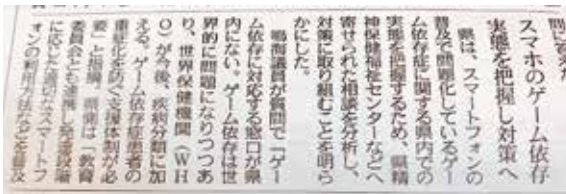 スマホのゲーム依存
実態を把握し対策へ
県は、スマートフォンの
普及で問題化しているゲー
ム依存症に関する県内での
実態を把握するため、県精
神保健福祉センターなどへ
寄せられた相談を分析し、
対策に取り組むことを明ら
かにした。
鳴海議員が質問で「ゲー
ム依存に対応する窓口が県
内にない。ゲーム依存は世
界的に問題になりつつあ
り、世界保健機関（WH
O）が今後、疾病分類に加
える。ゲーム依存症患者の
重症化を防ぐ支援体制が必
要」と指摘。県側は「教育
委員会とも連携し発達段階
に応じた適切なスマートフ
ォンの利用方法などを普及